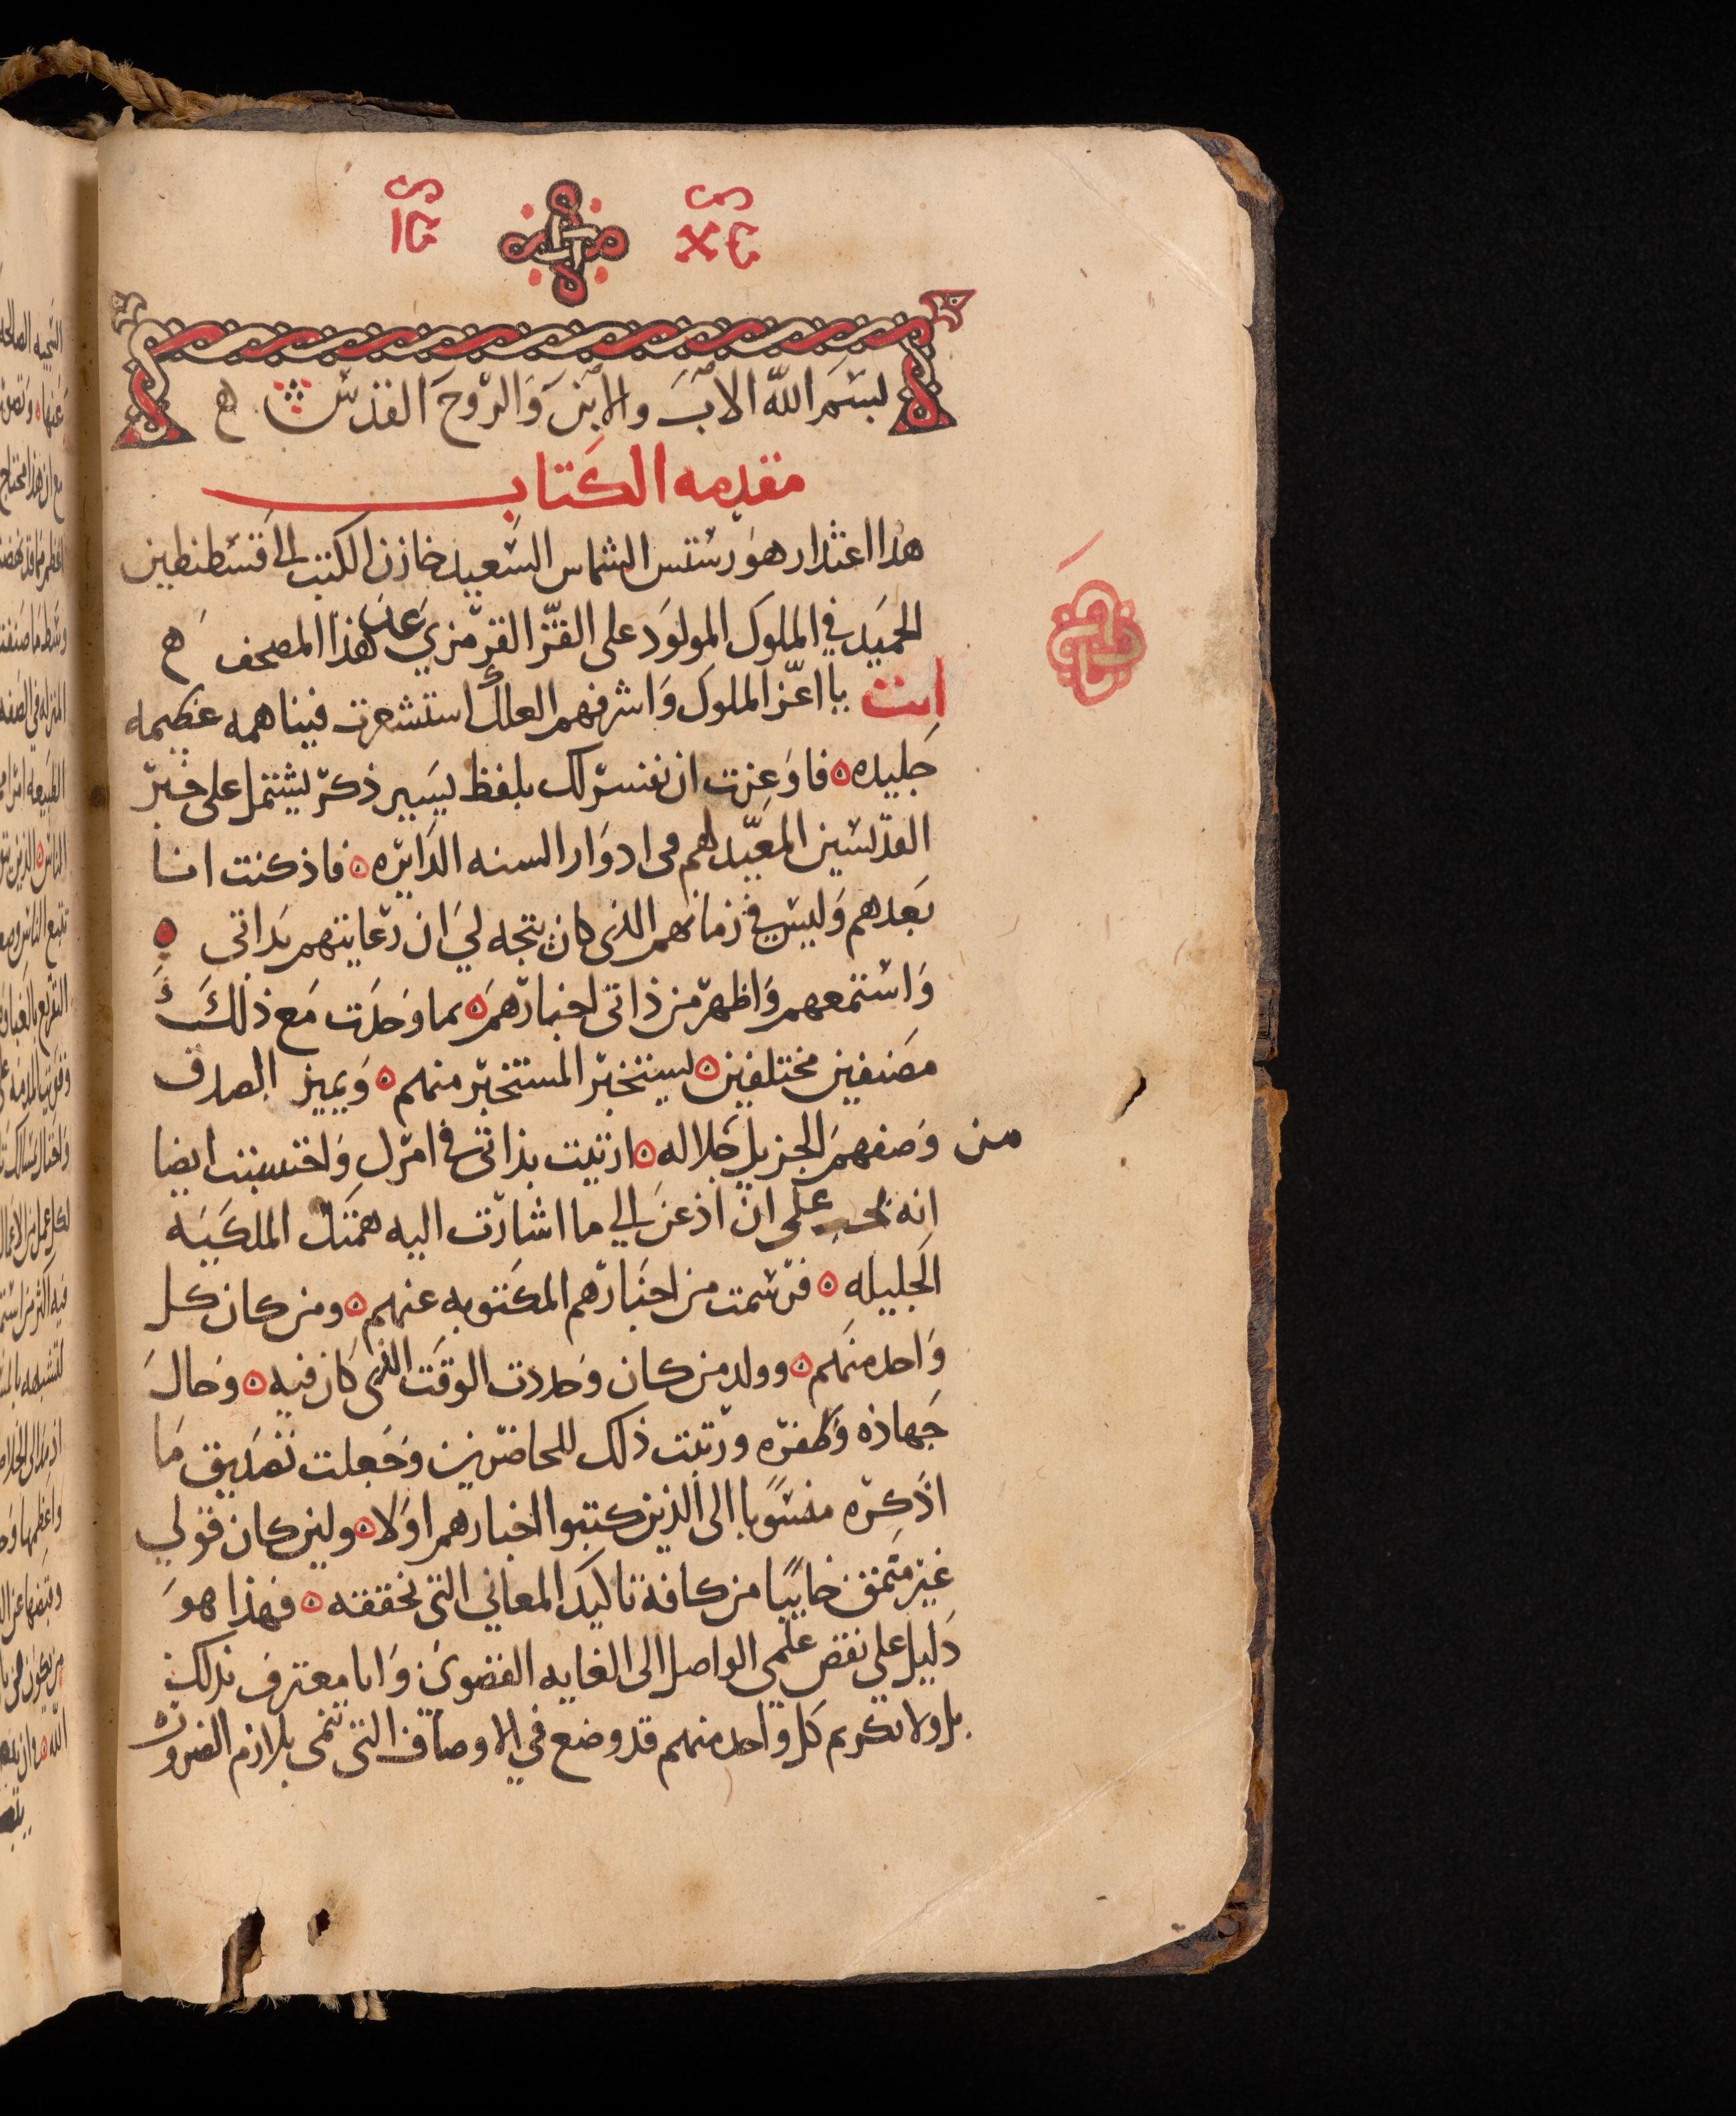 ⲓⲥ ⲭⲥ
بسم الله الاب والابن والروح القدس
مقدمه الكتاب
هذا اعتذار هورستس الشماس السعيد خازن الكتب الى قسطنطين
الحميد في الملوك المولود على القز القرمزي عن هذا المصحف
انت يا اعز الملوك واشرفهم العلك استشعرت فينا همه عظيمه
جليله فاوعزت ان نفسر لك بلفظ يسير ذكر يشتمل على خبر
القديسين المعيد لهم في ادوار السنه الدايره فاذ كنت انا
بعدهم وليس في زمانهم الذي كان يتجه لي ان رعاينتهم بذاتي
واستمعهم واظهر من ذاتي اخبارهم بما وجدت مع ذلك
مصنفين مختلفين ليستخبر المستخبر منهم ويميز الصدق
من وصفهم الجزيل جلاله ارتيبت بذاتي في امرك واحتسبت ايضا
انه يجب علي ان اذعن الي ما اشارت اليه همتك الملكيه
الجليله فرسمت من اخبارهم المكتوبه عنهم ومن كان كل
واحد منهم وولد من كان وحددت الوقت الذي كان فيه وحال
جهاده وظفره ورتبت ذلك للحاضرين وجعلت تصديق ما
اذكره منسوبا الى الذين كتبوا اخبارهم اولا ولين كان قولي
غير متمق خاييا من كافة تاكيد المعاني التي تحققه فهذا هو
دليل علي نقص علمي الواصل الى الغايه القصوي وانا معترف بذلك
بل ولا تكريم كل واحد منهم قد وضع في الاوصاف التي تنمى بلازم الضروره